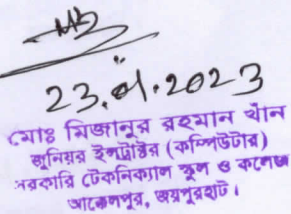 23.01.2023
মোঃ মিজানুর রহমান খাঁন
জুনিয়র ইন্সট্রাক্টর (কম্পিউটার)
সরকারি টেকনিক্যাল স্কুল ও কলেজ
আক্কেলপুর, জয়পুরহাট।